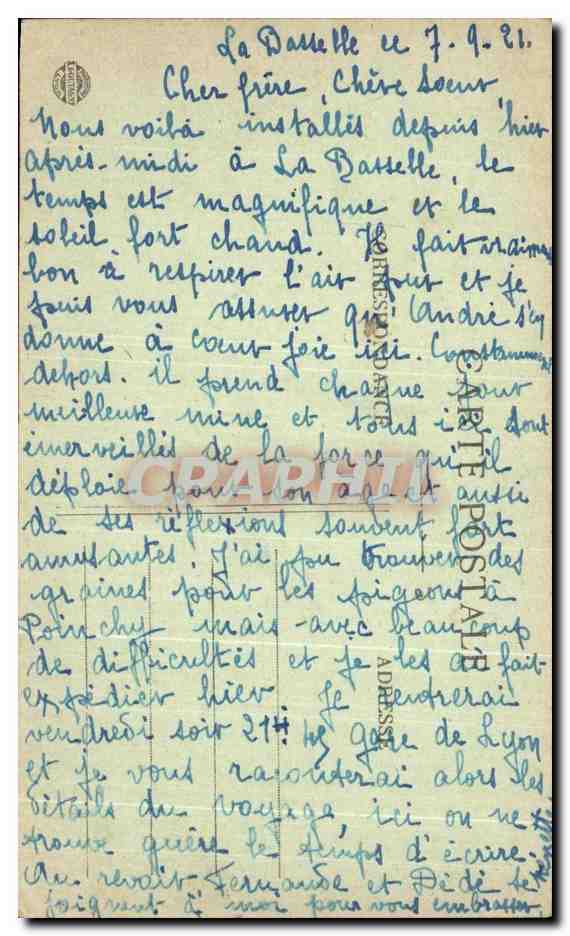 La Basselle ce 7.9.21.
Cher frère, Chère Soeur,
Nous voilà installés depuis hier
après-midi à La Basselle, le
temps est magnifique et le
soleil fort chaud. Il fait vraiment
bon à respirer l'air pur et je
puis vous assurer qu'André s'en
donne à coeur joie ici. Constamment
dehors. il prend chaque jour
meilleure mine et tous ici sont
émerveillés de la force qu'il
déploie pour son age et aussi
de ses réflexions souvent fort
amusantes, J'ai pu trouver des
graines pour les pigeons à
Poinchy mais avec beaucoup
de difficultés et je les ai fait
expédier hier. Je rentrerai
vendredi soir 21H.45 gare de Lyon
et je vous raconterai alors les
détails du voyage, ici on ne
trouve guère le temps d'écrire.
Au revoir. Fernande et Dédé se
joignent à moi pour vous embrasser,
CARTE POSTALE
CORRESPONDANCE
ADRESSE
CRAPHIL